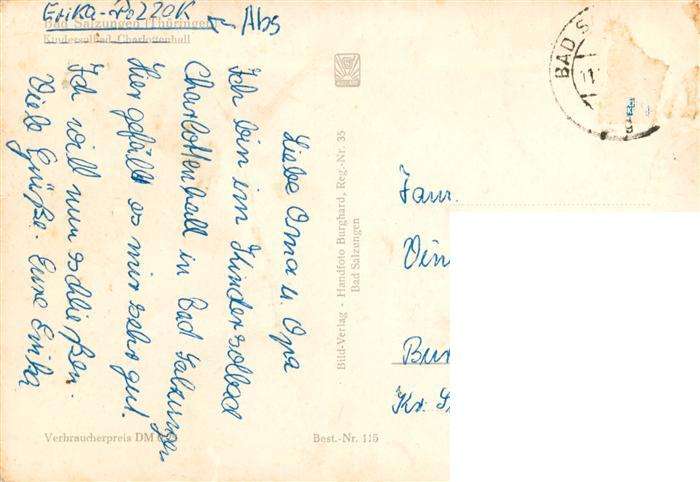 Erika Pozzok
Abs
Bad Salzungen (Thüringen)
Kindersolbad Charlottenhall
Liebe Oma u. Opa
Ich bin im Kindersolbad
Charlottenhall in Bad Salzungen
Hier gefällt es mir sehr gut.
Ich will nun schließen.
Viele Grüße. Eure Erika
Bild-Verlag - Handfoto Burghard, Reg.-Nr. 35
Bad Salzungen
BAD S
Verbraucherpreis DM
Best.-Nr. 115
Fam.
Kr.